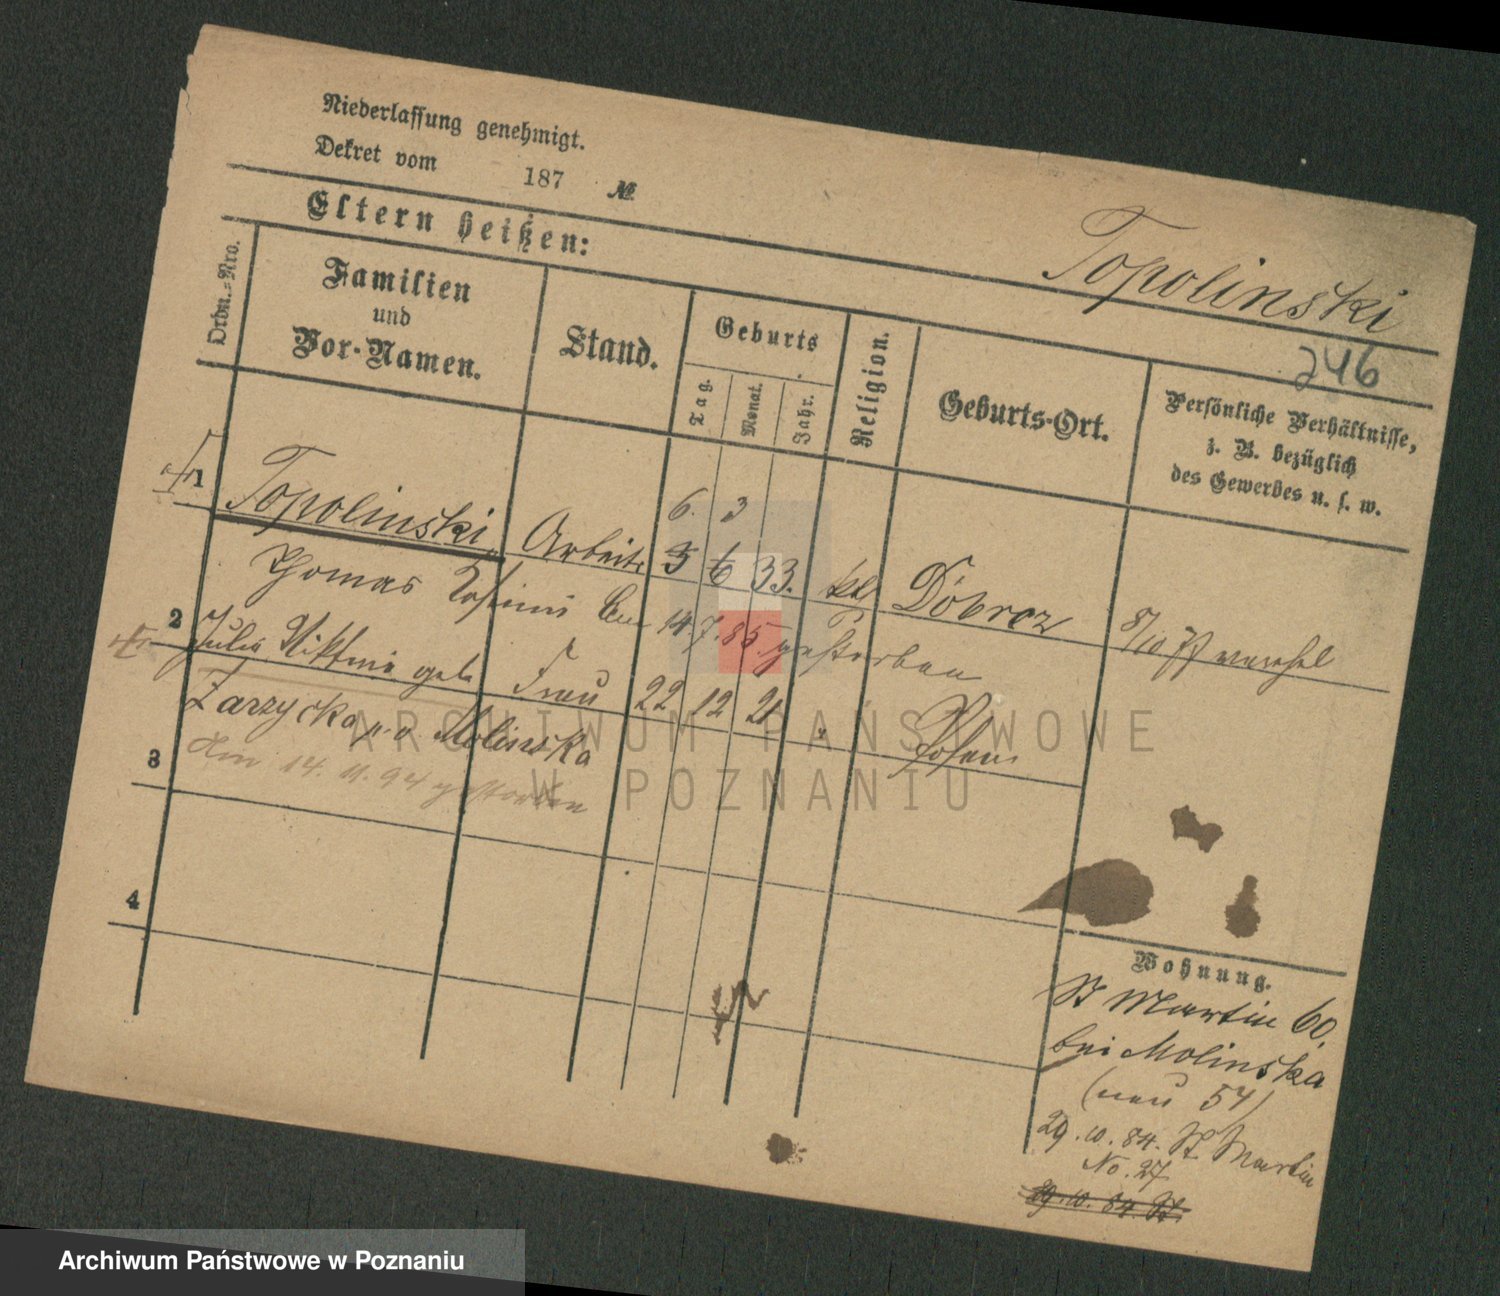 Niederlassung genehmigt.
Dekret vom 187 №
Topolinski
246
Eltern heißen:
Ordn.-Nro.
Familien
und
Vor-Namen.
Stand.
Geburts
Tag.
Monat.
Jahr.
Religion.
Geburts-Ort.
Persönliche Verhältnisse,
z. B. bezüglich
des Gewerbes u. s. w.
6. 3
1 Topolinski Arbeit. 5 6 33. kt
Thomas
14 7. 85. gestorben
2 Frau 22 12 21 " Posen
Zarzycka Molinska
3 Am 14. 11. 94 gestorben
4
Wohnung.
St Martin 60.
bei Molinska
(neu 54)
29. 10. 84. St Martin
No. 27
29. 10. 84. St
ARCHIWUM PAŃSTWOWE
W POZNANIU
Archiwum Państwowe w Poznaniu